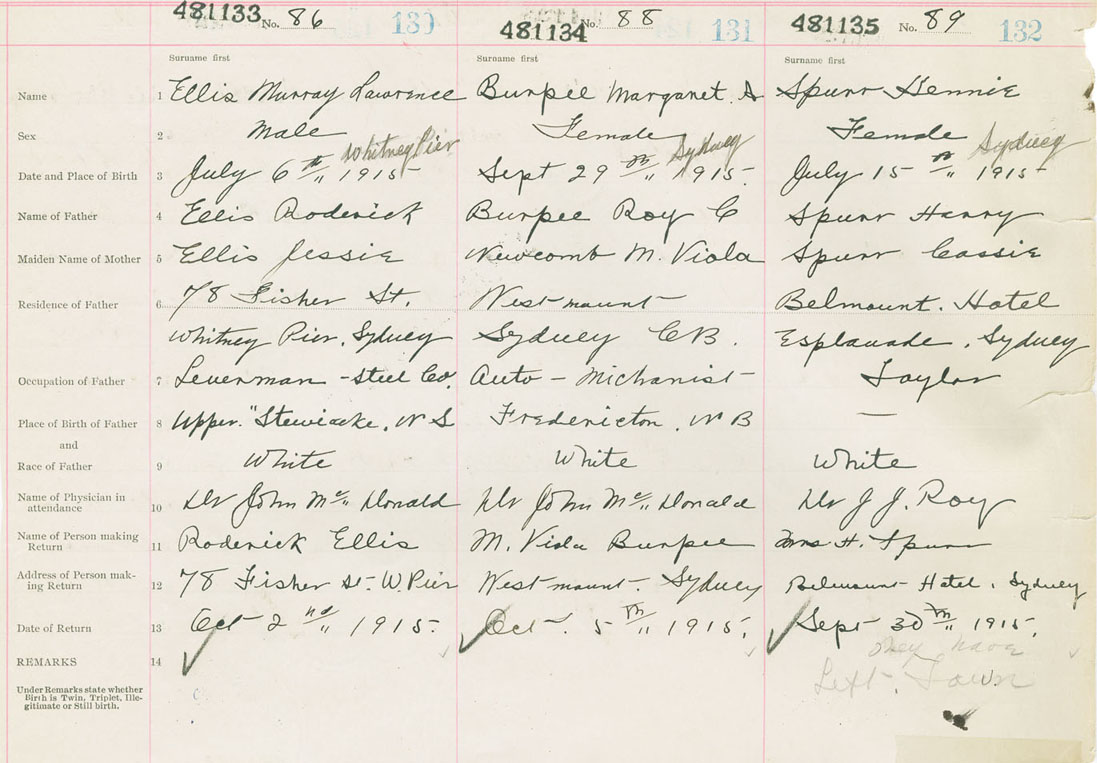 481133 No. 86 130 481134 No. 88 131 481135 No. 89 132
Surname first Surname first Surname first
Name 1 Ellis Murray Lawrence Burpee Margaret. A Spurr Hennie
Sex 2 Male Female Female
Whitney Pier Sydney Sydney
Date and Place of Birth 3 July 6th 1915 Sept 29th 1915. July 15th 1915
Name of Father 4 Ellis Roderick Burpee Roy C Spurr Harry
Maiden Name of Mother 5 Ellis Jessie Newcomb M. Viola Spurr Cassie
Residence of Father 6 78 Fisher St. Westmount Belmount. Hotel
Whitney Pier, Sydney Sydney C B. Esplanade, Sydney
Occupation of Father 7 Leverman - Steel Co. Auto - Michanist Taylor
Place of Birth of Father 8 Upper "Stewiacke, N S Fredericton, N B —
and
Race of Father 9 White White White
Name of Physician in
attendance 10 Dr John Mc Donald Dr John Mc Donald Dr J J. Roy
Name of Person making
Return 11 Roderick Ellis M. Viola Burpee Mrs H. Spurr
Address of Person mak-
ing Return 12 78 Fisher St- W. Pier Westmount. Sydney Belmount Hotel, Sydney
Date of Return 13 Oct 2nd 1915. Oct. 5th 1915. Sept 30th 1915.
REMARKS 14 They have
Left. Town
Under Remarks state whether
Birth is Twin, Triplet, Ille-
gitimate or Still birth.